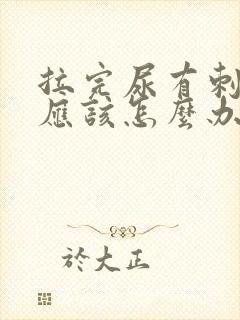 拉完尿有刺
應該怎麼办
於大正